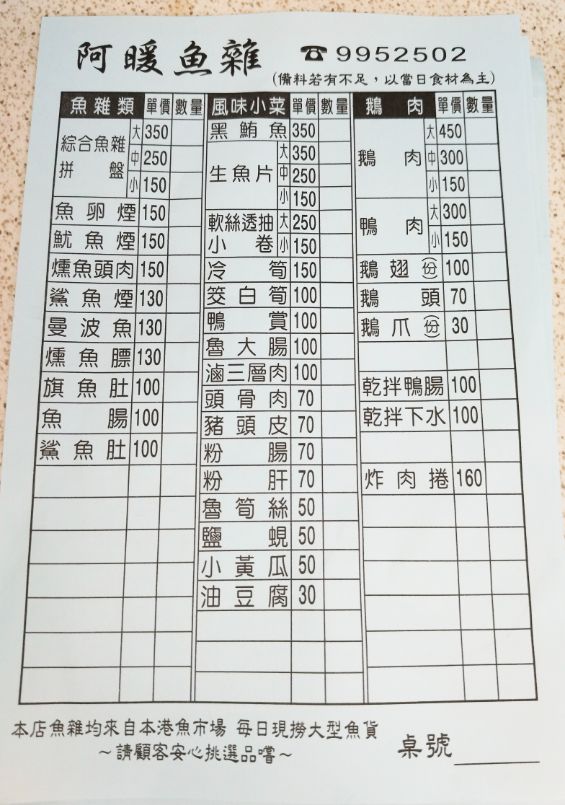 阿暖魚雜 ☎9952502
(備料若有不足,以當日食材為主)
魚雜類 單價 數量
綜合魚雜拼盤 大 350
中 250
小 150
魚卵煙 150
魷魚煙 150
燻魚頭肉 150
鯊魚煙 130
曼波魚 130
燻魚膘 130
旗魚肚 100
魚腸 100
鯊魚肚 100
風味小菜 單價 數量
黑鮪魚 350
生魚片 大 350
中 250
小 150
軟絲透抽 大 250
小卷 小 150
冷筍 150
筊白筍 100
鴨賞 100
魯大腸 100
滷三層肉 100
頭骨肉 70
豬頭皮 70
粉腸 70
粉肝 70
魯筍絲 50
鹽蜆 50
小黃瓜 50
油豆腐 30
鵝肉 單價 數量
鵝肉 大 450
中 300
小 150
鴨肉 大 300
小 150
鵝翅(份) 100
鵝頭 70
鵝爪(份) 30
乾拌鴨腸 100
乾拌下水 100
炸肉捲 160
本店魚雜均來自本港魚市場 每日現撈大型魚貨
~請顧客安心挑選品嚐~
桌號